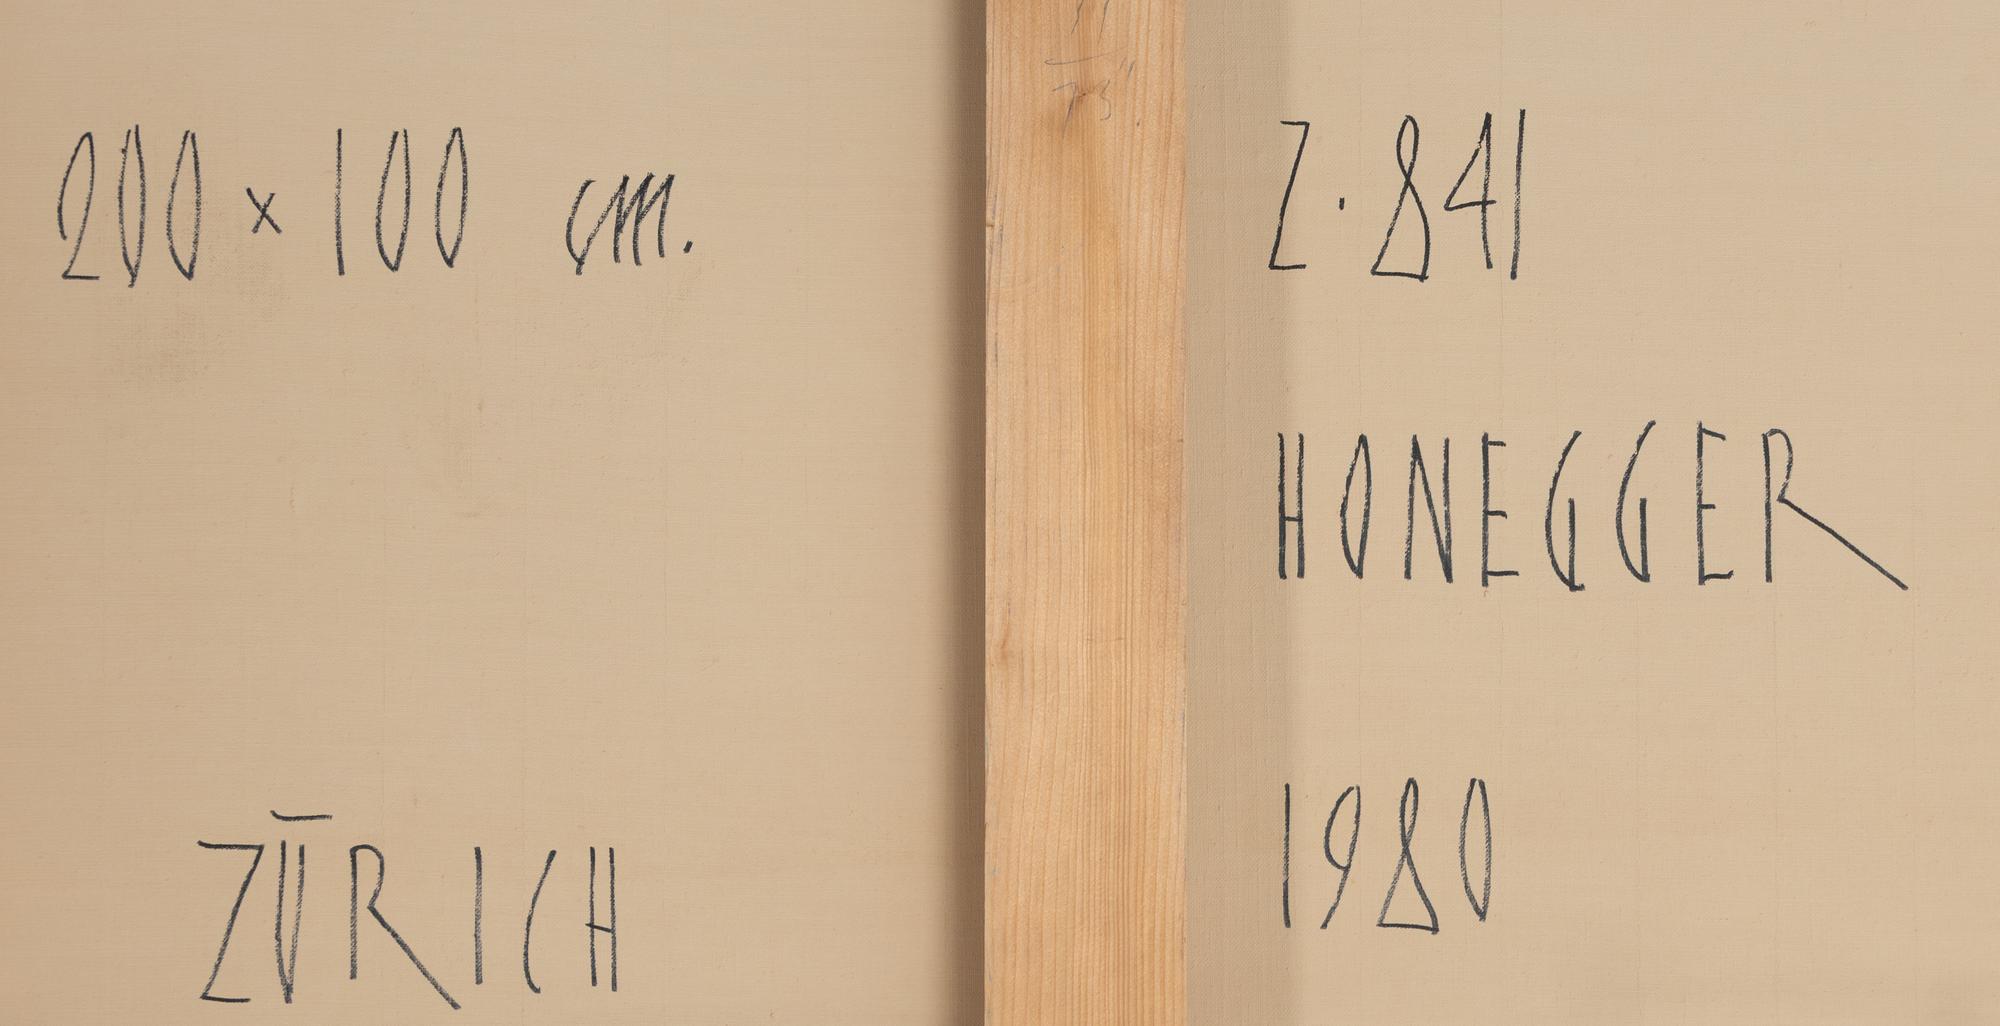 200 x 100 cm.
ZŪRICH
Z.841
HONEGGER
1980